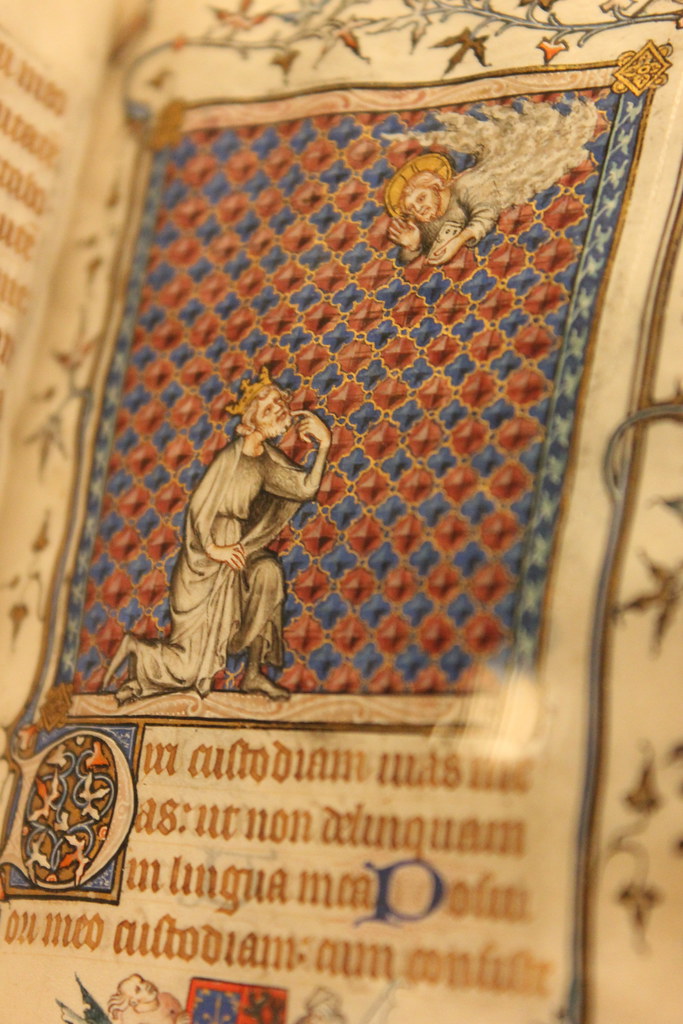 Dixi custodiam uias me
as: ut non delinquam
in lingua mea Posui
ori meo custodiam: cum consiste